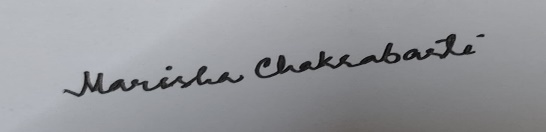 Marisha Chakrabarti